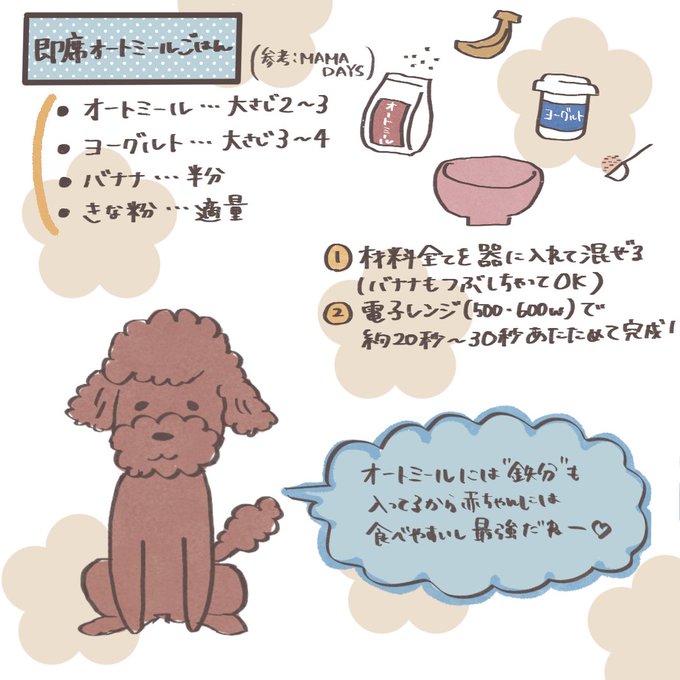 即席オートミールごはん
(参考:MAMA
DAYS)
• オートミール…大さじ2～3
• ヨーグルト…大さじ3～4
• バナナ…半分
• きな粉…適量
オートミール
ヨーグルト
① 材料全てを器に入れて混ぜる
(バナナもつぶしちゃってOK)
② 電子レンジ(500・600w)で
約20秒～30秒あたためて完成!
オートミールには"鉄分"も
入ってるから赤ちゃんには
食べやすいし最強だねー♡